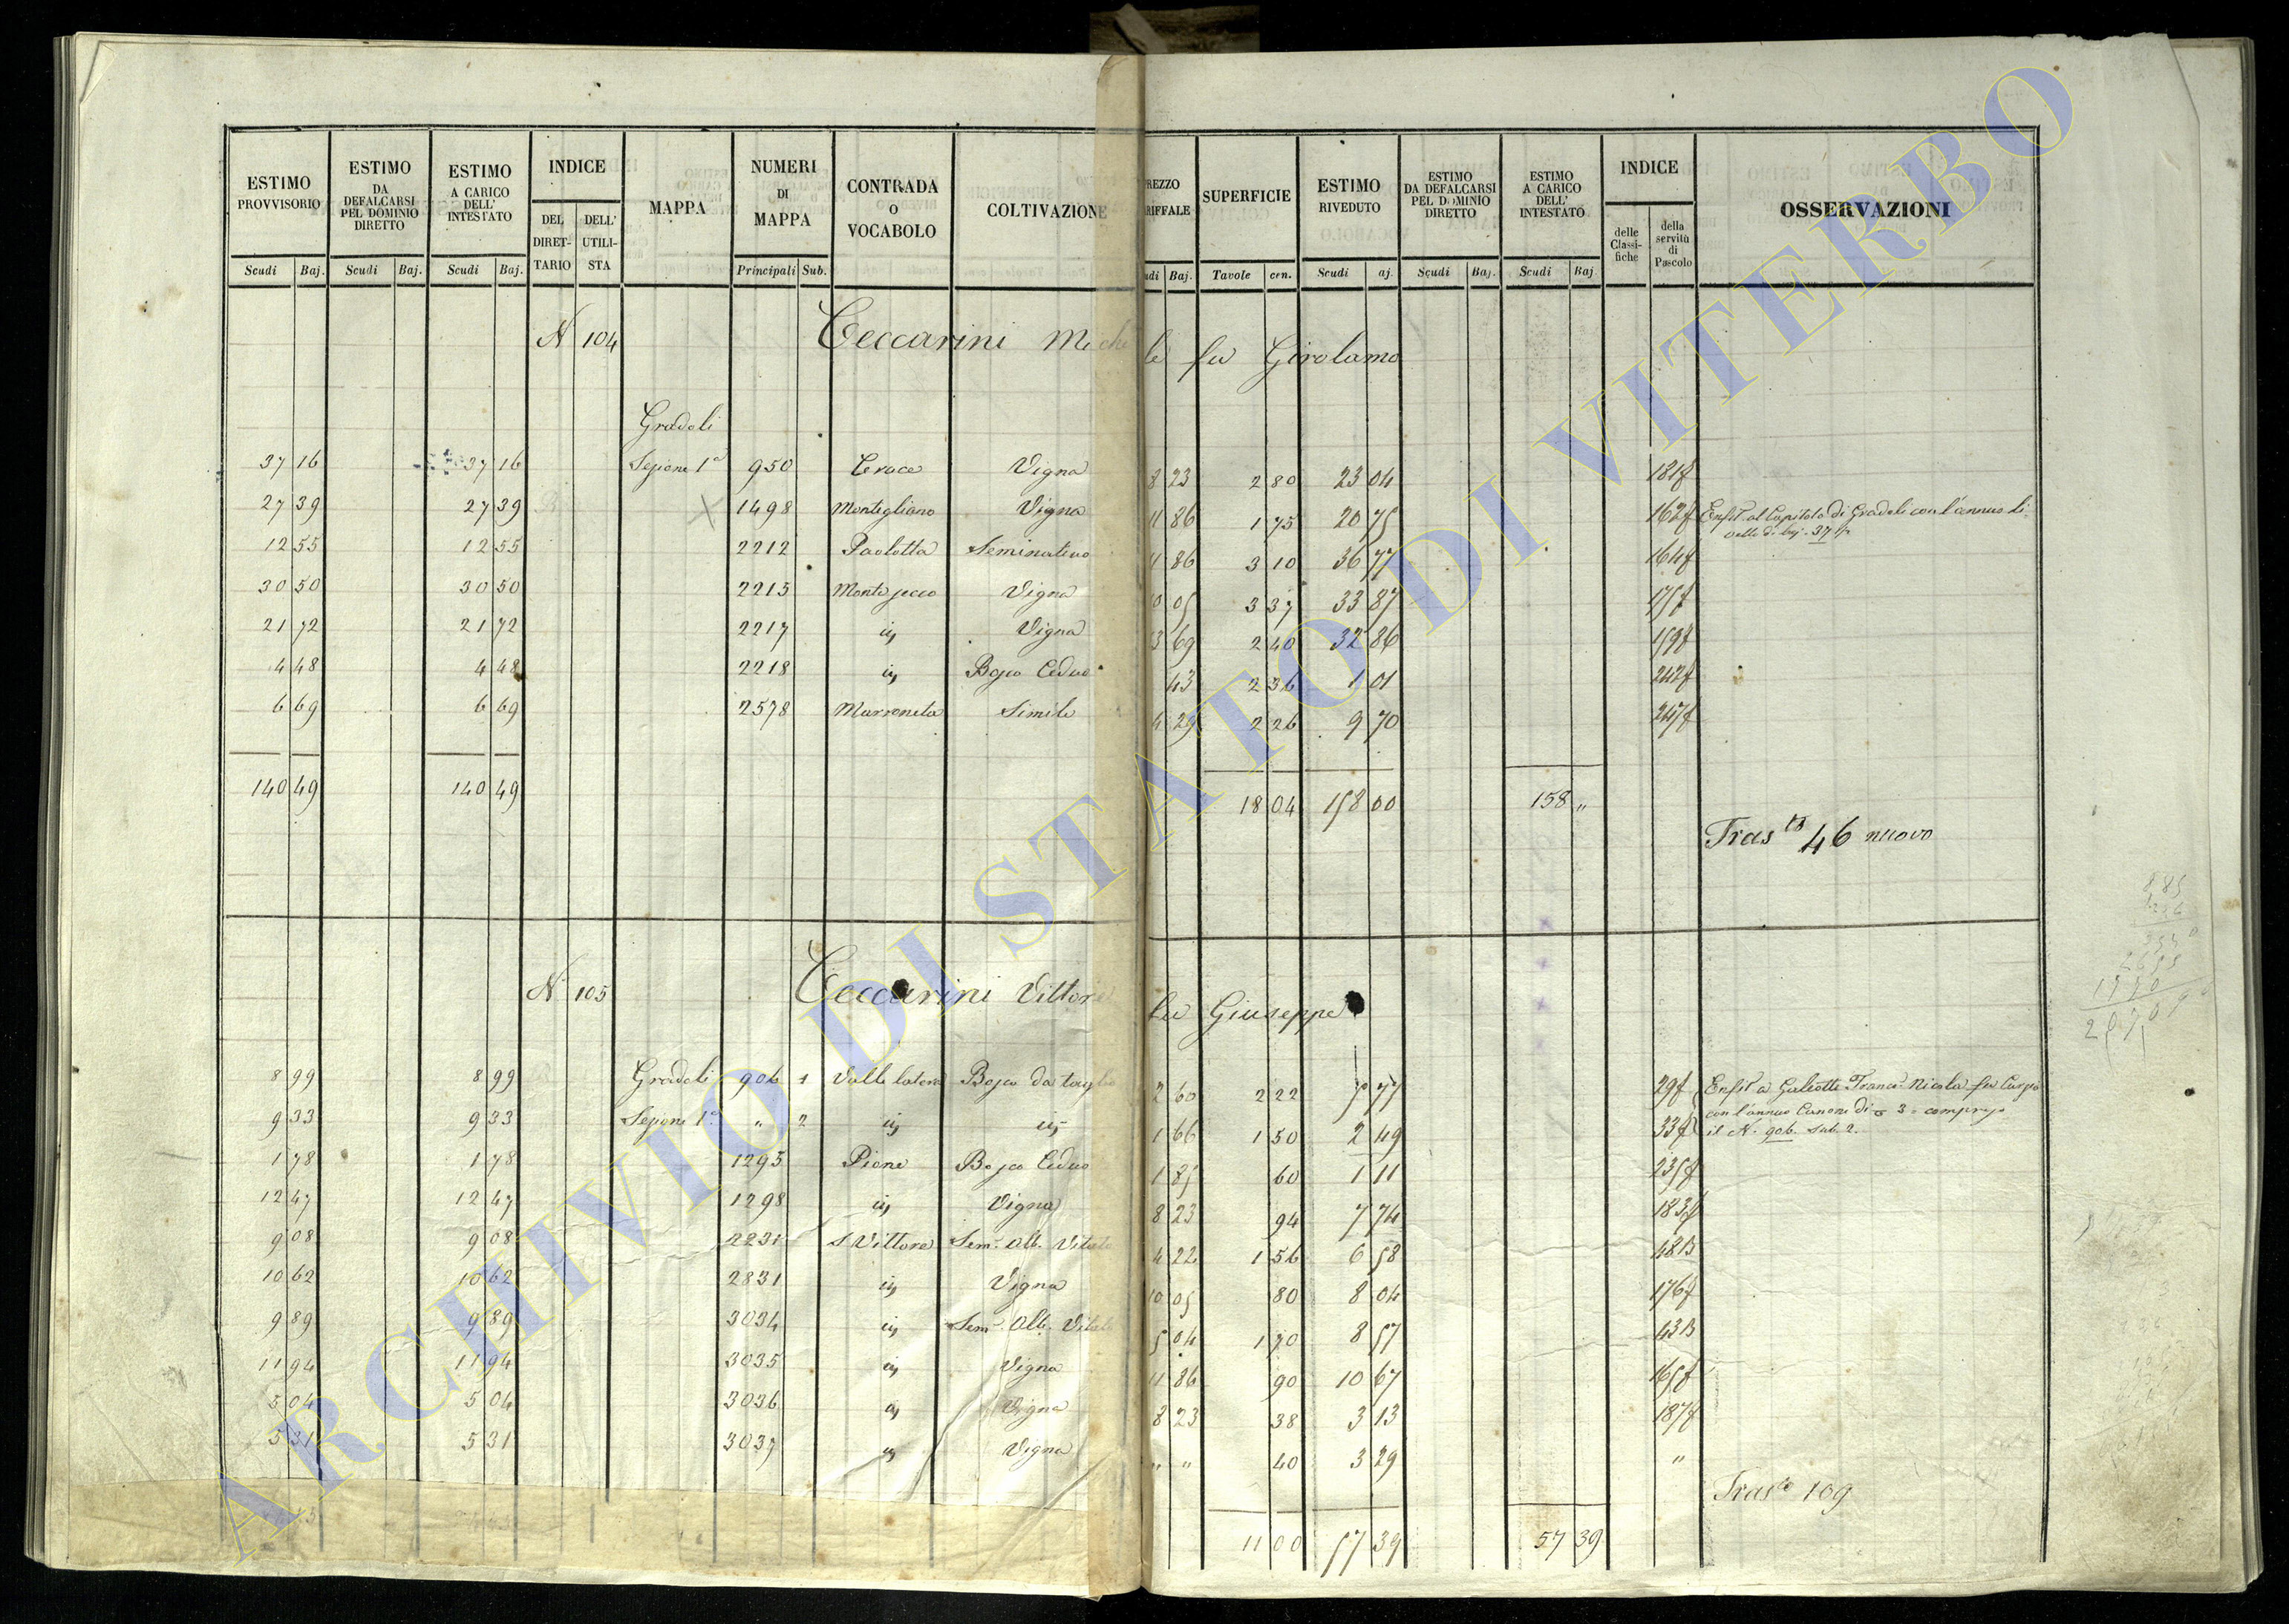 ESTIMO PROVVISORIO | ESTIMO DA DEFALCARSI PEL DOMINIO DIRETTO | ESTIMO A CARICO DELL' INTESTATO | INDICE | MAPPA | NUMERI DI MAPPA | CONTRADA O VOCABOLO | COLTIVAZIONE | REZZO RIFFALE | SUPERFICIE | ESTIMO RIVEDUTO | ESTIMO DA DEFALCARSI PEL DOMINIO DIRETTO | ESTIMO A CARICO DELL' INTESTATO | INDICE | OSSERVAZIONI
DEL DIRETTARIO | DELL' UTILISTA | delle Classifiche | della servitù di Pascolo
Scudi | Baj. | Scudi | Baj. | Scudi | Baj. | Principali | Sub. | udi | Baj. | Tavole | cen. | Scudi | aj. | Scudi | Baj. | Scudi | Baj
N 104 Ceccarini Michele fu Girolamo
Gradoli
37 16 | 37 16 | Sezione 1a | 950 | Croce | Vigna | 8 23 | 2 80 | 23 04 | 181f
27 39 | 27 39 | 1498 | Montigliano | Vigna | 11 86 | 1 75 | 20 75 | 162f | Enfit. al Capitolo di Gradoli con l'annuo li
vello di baj. 37
12 55 | 12 55 | 2212 | Paolotta | Seminativo | 11 86 | 3 10 | 36 77 | 164f
30 50 | 30 50 | 2215 | Monte secco | Vigna | 10 05 | 3 37 | 33 87 | 175f
21 72 | 21 72 | 2217 | id | Vigna | 3 69 | 2 40 | 32 86 | 159f
4 48 | 4 48 | 2218 | id | Bosco Ceduo | 43 | 2 36 | 1 01 | 242f
6 69 | 6 69 | 2578 | Marroneta | Simile | 4 29 | 2 26 | 9 70 | 247f
140 49 | 140 49 | 18 04 | 158 00 | 158 "
Trasto 46 nuovo
N 105 Ceccarini Vittore fu Giuseppe
8 99 | 8 99 | Gradoli | 906 | 1 | Valle latera | Bosco da taglio | 2 60 | 2 22 | 5 77 | 29f | Enfit a Galeotti Franco Nicola fu
9 33 | 9 33 | Sezione 1a | " | 2 | id | id | 1 66 | 1 50 | 2 49 | 33f | con l'annuo Canone di 3 = compreso
il N. 906. sub. 2.
1 78 | 1 78 | 1295 | Piane | Bosco Ceduo | 1 85 | 60 | 1 11 | 235f
12 47 | 12 47 | 1298 | id | Vigna | 8 23 | 94 | 7 74 | 183f
9 08 | 9 08 | 2231 | S Vittore | Sem. Alb. Vitato | 4 22 | 1 56 | 6 58 | 48B
10 62 | 10 62 | 2831 | id | Vigna | 10 05 | 80 | 8 04 | 176f
9 89 | 9 89 | 3034 | id | Sem. Alb. Vitato | 5 04 | 1 70 | 8 57 | 43B
11 94 | 11 94 | 3035 | id | Vigna | 11 86 | 90 | 10 67 | 165f
5 04 | 5 04 | 3036 | id | Vigna | 8 23 | 38 | 3 13 | 187f
5 31 | 5 31 | 3037 | id | Vigna | " " | 40 | 3 29 | "
Trasto 109
11 00 | 57 39 | 57 39
ARCHIVIO DI STATO DI VITERBO